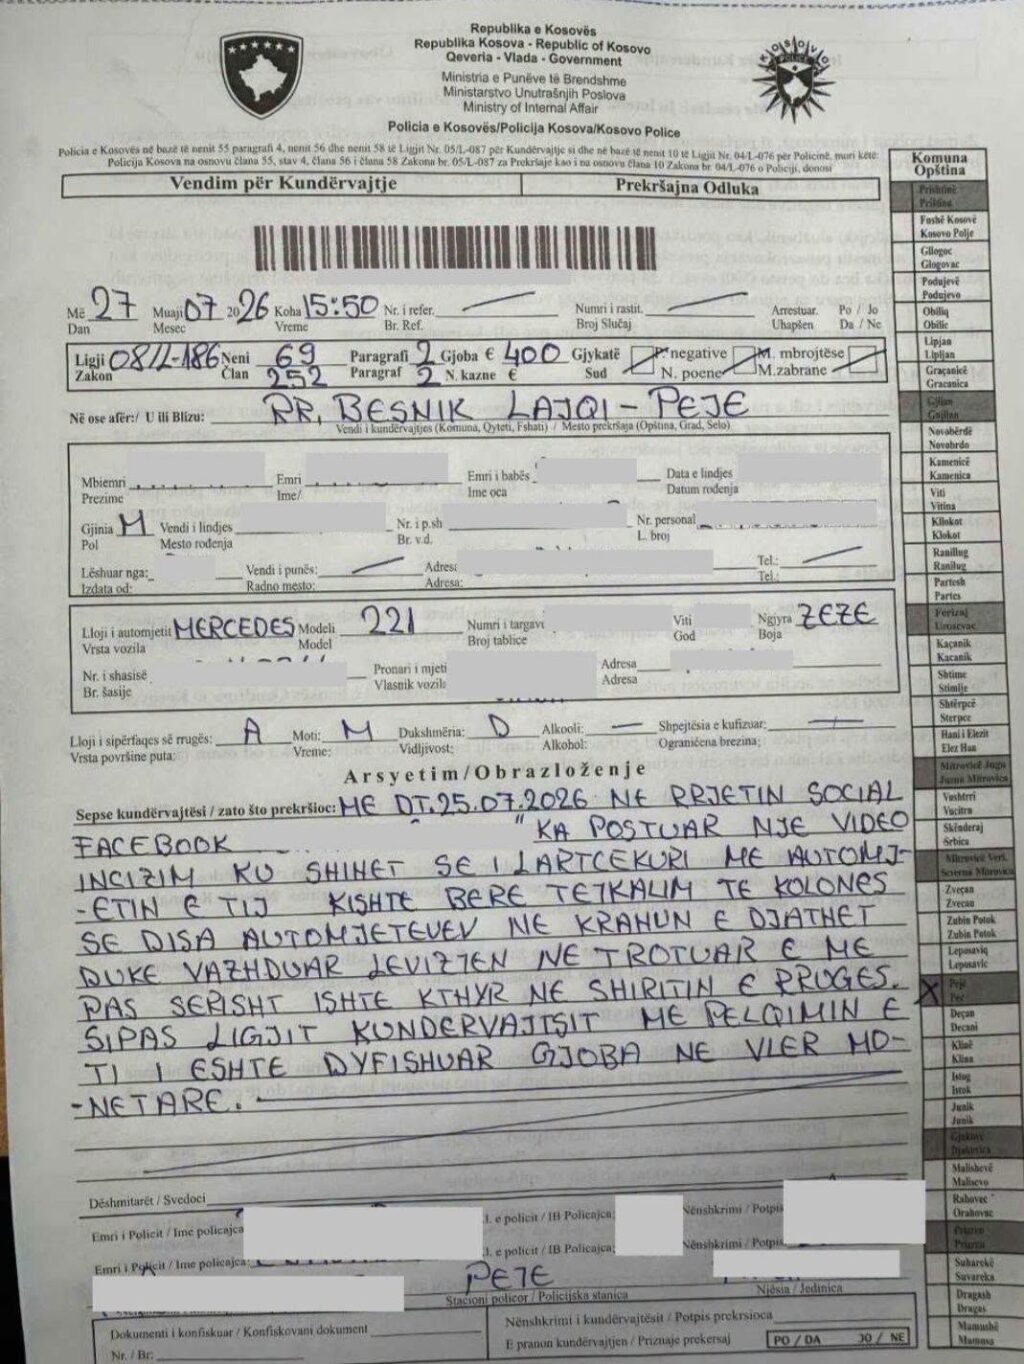 Republika e Kosovës
Republika Kosova - Republic of Kosovo
Qeveria - Vlada - Government
Ministria e Punëve të Brendshme
Ministarstvo Unutrašnjih Poslova
Ministry of Internal Affair
Policia e Kosovës/Policija Kosova/Kosovo Police
KOSOVO
POLICE
Policia e Kosovës në bazë të nenit 55 paragrafi 4, nenit 56 dhe nenit 58 të Ligjit Nr. 05/L-087 për Kundërvajtje si dhe në bazë të nenit 10 të Ligjit Nr. 04/L-076 për Policinë, muri këtë:
Policija Kosova na osnovu člana 55, stav 4, člana 56 i člana 58 Zakona br. 05/L-087 za Prekršaje kao i na osnovu člana 10 Zakona br. 04/L-076 o Policiji, donosi
Vendim për Kundërvajtje Prekršajna Odluka
Më 27 Muaji 07 2026 Koha 15:50 Nr. i refer. Numri i rastit. Arrestuar. Po / Jo
Dan Mesec Vreme Br. Ref. Broj Slučaj Uhapšen Da / Ne
Ligji 08/L-186 Neni 69 Paragrafi 2 Gjoba € 400 Gjykatë P. negative M. mbrojtëse
Zakon Član 252 Paragraf 2 N. kazne € Sud N. poene M.zabrane
Në ose afër:/ U ili Blizu: RR, BESNIK LAJQI - PEJE
Vendi i kundërvajtjes (Komuna, Qyteti, Fshati) / Mesto prekršaja (Opština, Grad, Selo)
Mbiemri Emri Emri i babës Data e lindjes
Prezime Ime/ Ime oca Datum rođenja
Gjinia M Vendi i lindjes Nr. i p.sh Nr. personal
Pol Mesto rođenja Br. v.d. L. broj
Lëshuar nga: Vendi i punës: Adresa Tel.:
Izdata od: Radno mesto: Adresa: Tel.:
Lloji i automjetit MERCEDES Modeli 221 Numri i targave Viti Ngjyra ZEZE
Vrsta vozila Model Broj tablice God Boja
Nr. i shasisë Pronari i mjeti Adresa
Br. šasije Vlasnik vozila Adresa
Lloji i sipërfaqes së rrugës: A Moti: M Dukshmëria: D Alkooli: — Shpejtësia e kufizuar: —
Vrsta površine puta: Vreme: Vidljivost: Alkohol: Ograničena brezina:
Arsyetim/Obrazloženje
Sepse kundërvajtësi / zato što prekršioc: ME DT.25.07.2026 NE RRJETIN SOCIAL
FACEBOOK " KA POSTUAR NJE VIDEO
INCIZIM KU SHIHET SE I LARTCEKURI ME AUTOMJ-
-ETIN E TIJ KISHTE BERE TEJKALIM TE KOLONES
SE DISA AUTOMJETEVEV NE KRAHUN E DJATHET
DUKE VAZHDUAR LEVIZJEN NE TROTUAR E ME
PAS SERISHT ISHTE KTHYR NE SHIRITIN E RRUGES.
SIPAS LIGJIT KUNDERVAJTSIT ME PELQIMIN E
TI I ESHTE DYFISHUAR GJOBA NE VLER MO-
-NETARE.
Dëshmitarët / Svedoci
Emri i Policit / Ime policajca I. e policit / IB Policajca: Nënshkrimi / Potpis
Emri i Policit / Ime policajca: I. e policit / IB Policajca: Nënshkrimi / Potpis
PEJE
Stacioni policor / Policijska stanica Njësia / Jedinica
Dokumenti i konfiskuar / Konfiskovani dokument
Nr. / Br:
Nënshkrimi i kundërvajtësit / Potpis prekrsioca
E pranon kundërvajtjen / Priznaje prekersaj PO / DA JO / NE
Komuna
Opština
Prishtinë
Priština
Fushë Kosovë
Kosovo Polje
Gllogoc
Glogovac
Podujevë
Podujevo
Obiliq
Obilic
Lipjan
Lipljan
Graçanicë
Gracanica
Gjilan
Gnjilan
Novobërdë
Novobrdo
Kamenicë
Kamenica
Viti
Vitina
Kllokot
Klokot
Ranillug
Ranilug
Partesh
Partes
Ferizaj
Urosevac
Kaçanik
Kacanik
Shtime
Stimlje
Shtërpcë
Sterpce
Hani i Elezit
Elez Han
Mitrovicë Jugu
Juzna Mitrovica
Vushtrri
Vucitrn
Skënderaj
Srbica
Mitrovicë Veri.
Severna Mitrovica
Zveçan
Zvecan
Zubin Potok
Zubin Potok
Leposaviq
Leposavic
X Pejë
Pec
Deçan
Decani
Klinë
Klina
Istog
Istok
Junik
Junik
Gjakovë
Djakovica
Malishevë
Malisevo
Rahovec
Orahovac
Prizren
Prizren
Suharekë
Suvareka
Dragash
Dragas
Mamushë
Mamusa